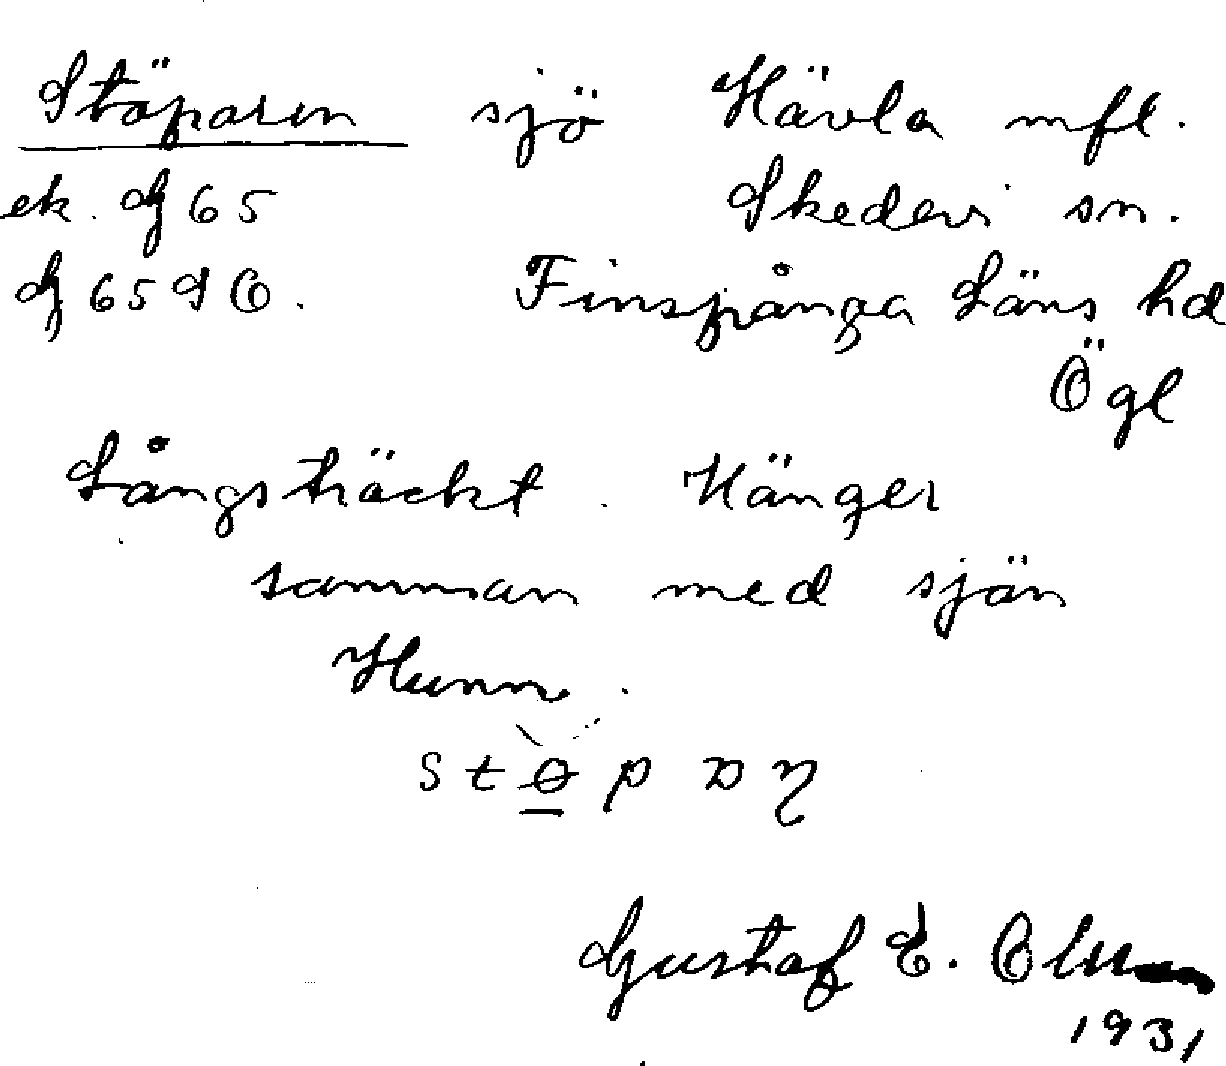 Stöparen sjö Hävla mfl.
ek. G 65 Skedevi sn.
G 65 SO. Finspånga Läns hd
Ögl
Långsträckt. Hänger
samman med sjön
Hunn.
Gustaf E. Olsson
1931